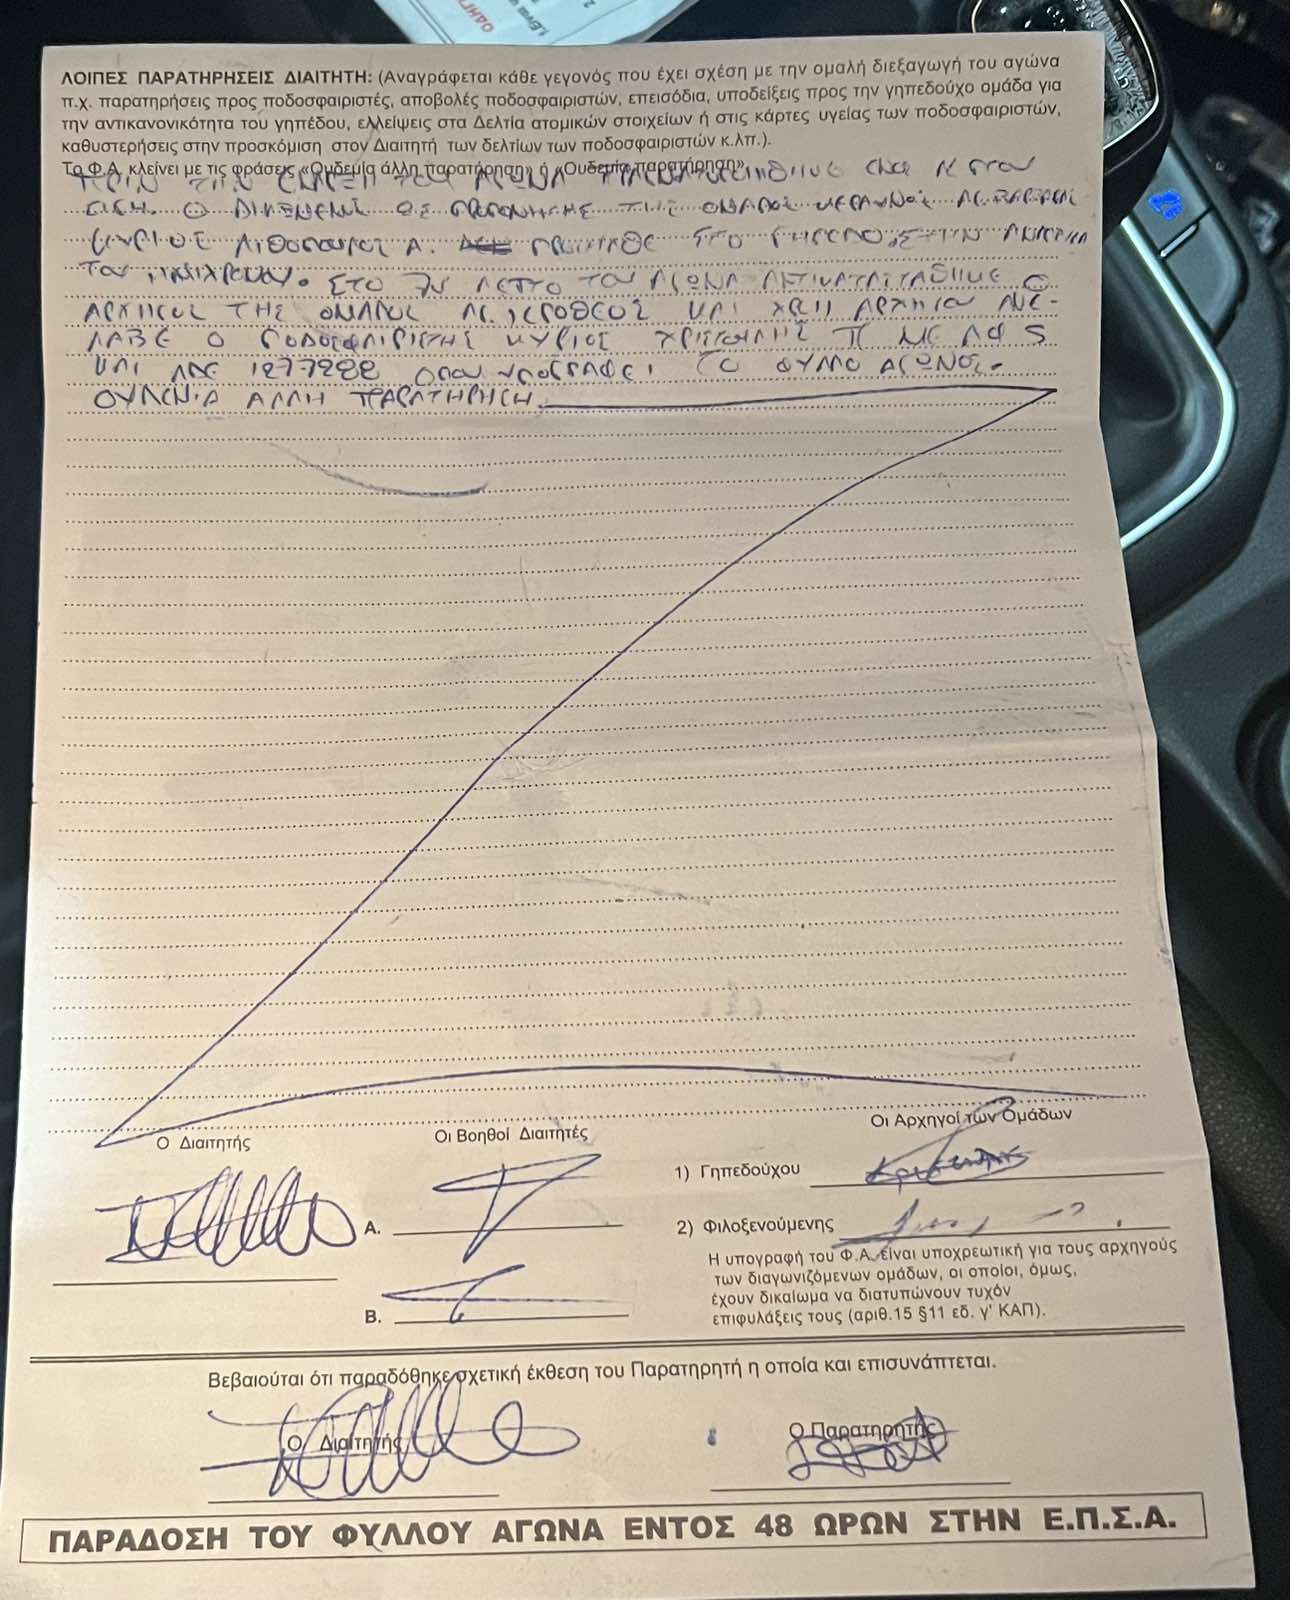 ΛΟΙΠΕΣ ΠΑΡΑΤΗΡΗΣΕΙΣ ΔΙΑΙΤΗΤΗ: (Αναγράφεται κάθε γεγονός που έχει σχέση με την ομαλή διεξαγωγή του αγώνα
π.χ. παρατηρήσεις προς ποδοσφαιριστές, αποβολές ποδοσφαιριστών, επεισόδια, υποδείξεις προς την γηπεδούχο ομάδα για
την αντικανονικότητα του γηπέδου, ελλείψεις στα Δελτία ατομικών στοιχείων ή στις κάρτες υγείας των ποδοσφαιριστών,
καθυστερήσεις στην προσκόμιση στον Διαιτητή των δελτίων των ποδοσφαιριστών κ.λπ.).
Το Φ.Α. κλείνει με τις φράσεις «Ουδεμία άλλη παρατήρηση» ή «Ουδεμία παρατήρηση»
ΠΡΙΝ ΤΗΝ ΕΝΑΡΞΗ ΤΟΥ ΑΓΩΝΑ
Ο ΠΡΟΠΟΝΗΤΗΣ ΤΗΣ ΟΜΑΔΟΣ ΚΕΡΑΥΝΟΣ
ΚΥΡΙΟΣ Α. ΣΤΟ
ΤΟΥ ΗΜΙΧΡΟΝΟΥ. ΣΤΟ ΛΕΠΤΟ ΤΟΥ ΑΓΩΝΑ ΑΝΤΙΚΑΤΑΣΤΑΘΗΚΕ Ο
ΑΡΧΗΓΟΣ ΤΗΣ ΟΜΑΔΟΣ ΚΑΙ ΧΡΗ ΑΡΧΗΓΟΥ ΑΝΕ-
ΛΑΒΕ Ο ΠΟΔΟΣΦΑΙΡΙΣΤΗΣ ΚΥΡΙΟΣ ΧΡΙΣΤΟΥΛΗΣ Π ΜΕ ΑΦ 5
ΚΑΙ 1277288 ΟΠΟΥ ΥΠΟΓΡΑΦΕΙ ΤΟ ΦΥΛΛΟ ΑΓΩΝΟΣ.
ΟΥΔΕΜΙΑ ΑΛΛΗ ΠΑΡΑΤΗΡΗΣΗ
Ο Διαιτητής
Οι Βοηθοί Διαιτητές
Οι Αρχηγοί των Ομάδων
1) Γηπεδούχου
Α.
2) Φιλοξενούμενης
Η υπογραφή του Φ.Α. είναι υποχρεωτική για τους αρχηγούς
των διαγωνιζόμενων ομάδων, οι οποίοι, όμως,
έχουν δικαίωμα να διατυπώνουν τυχόν
επιφυλάξεις τους (αριθ.15 §11 εδ. γ' ΚΑΠ).
Β.
Βεβαιούται ότι παραδόθηκε σχετική έκθεση του Παρατηρητή η οποία και επισυνάπτεται.
Ο Διαιτητής
Ο Παρατηρητής
ΠΑΡΑΔΟΣΗ ΤΟΥ ΦΥΛΛΟΥ ΑΓΩΝΑ ΕΝΤΟΣ 48 ΩΡΩΝ ΣΤΗΝ Ε.Π.Σ.Α.